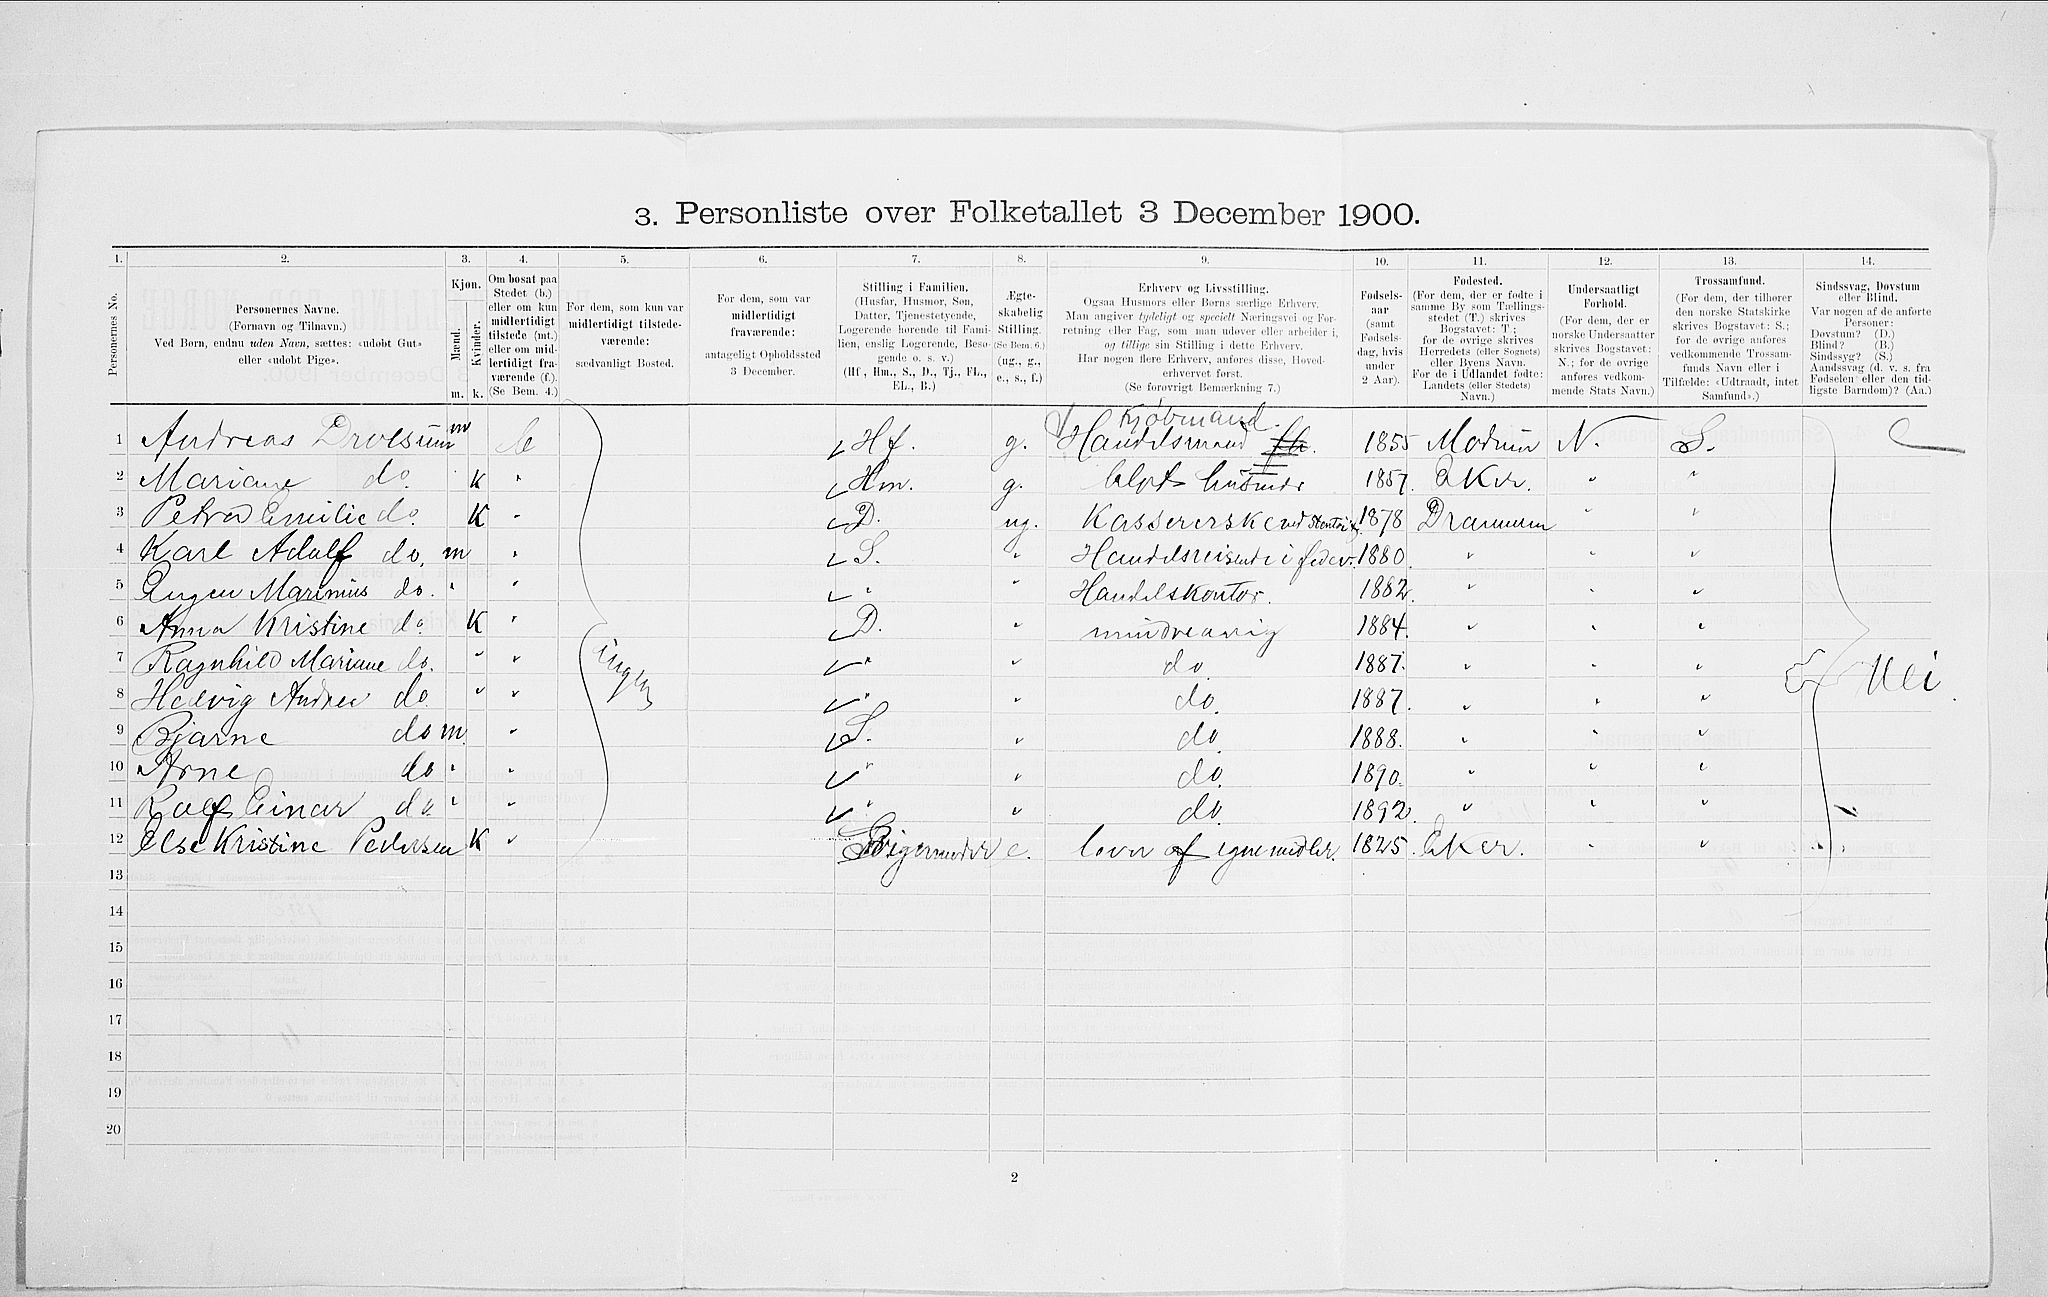 3. Personliste over Folketallet 3 December 1900.
1. 2. 3. 4. 5. 6. 7. 8. 9. 10. 11. 12. 13. 14.
Personernes No.
Personernes Navne.
(Fornavn og Tilnavn.)
Ved Børn, endnu uden Navn, sættes: «udøbt Gut»
eller «udøbt Pige».
Kjøn.
Mænd.
Kvinder.
m. k.
Om bosat paa
Stedet (b.)
eller om kun
midlertidigt
tilstede (mt.)
eller om mid-
lertidigt fra-
værende (f.).
(Se Bem. 4.)
For dem, som kun var
midlertidigt tilstede-
værende:
sædvanligt Bosted.
For dem, som var
midlertidigt
fraværende:
antageligt Opholdssted
3 December.
Stilling i Familien.
(Husfar, Husmor, Søn,
Datter, Tjenestetyende,
Logerende hørende til Fami-
lien, enslig Logerende, Besø-
gende o. s. v.)
(Hf., Hm., S., D., Tj., FL.,
EL., B.)
Ægte-
skabelig
Stilling.
(Se Bem. 6.)
(ug., g.,
e., s., f.)
Erhverv og Livsstilling.
Ogsaa Husmors eller Børns særlige Erhverv.
Man angiver tydeligt og specielt Næringsvei og For-
retning eller Fag, som man udøver eller arbeider i,
og tillige sin Stilling i dette Erhverv.
Har nogen flere Erhverv, anføres disse, Hoved-
erhvervet først.
(Se forøvrigt Bemærkning 7.)
Fødsels-
aar
(samt
Fødsels-
dag, hvis
under
2 Aar).
Fødested.
(For dem, der er fødte i
samme By som Tællings-
stedet (T.) skrives
Bogstavet: T.;
for de øvrige skrives
Herredets (eller Sognets)
eller Byens Navn.
For de i Udlandet fødte:
Landets (eller Stedets)
Navn.)
Undersaatligt
Forhold.
(For dem, der er
norske Undersaatter
skrives Bogstavet:
N.; for de øvrige
anføres vedkom-
mende Stats Navn.)
Trossamfund.
(For dem, der tilhører
den norske Statskirke
skrives Bogstavet: S.;
for de øvrige anføres
vedkommende Trossam-
funds Navn eller i
Tilfælde: «Udtraadt, intet
Samfund».)
Sindssvag, Døvstum
eller Blind.
Var nogen af de anførte
Personer:
Døvstum? (D.)
Blind? (B.)
Sindssyg? (S.)
Aandssvag (d. v. s. fra
Fødselen eller den tid-
ligste Barndom)? (Aa.)
Kjøbmand.
1 Andreas m b Hf. g. Handelsmand 1855 Modum N. S.
2 Mariane do. K " Hm. g. husmor 1857. Eker. " "
3 Petra Emilie do. K " D. ug. Kassererske ved 1878 Drammen " "
4 Karl Adolf do. m " S. " Handelsreisende i 1880. " " "
5 Eugen Marinius do. " " " " Handelskontor. 1882. " " "
6 Anna Kristine do. K " D. " mindreaarig 1884. " " "
7 Ragnhild Mariane do. " " " " do. 1887. " " "
ingen
Nei.
8 Hedvig Andrea do. " " " " do. 1887. " " "
9 Bjarne do m. " S. " do. 1888. " " "
10 Arne do " " " " do. 1890. " " "
11 Rolf Einar do. " " " " do. 1892. " " "
12 Else Kristine Pedersen K " Svigermoder e. lever af egne midler. 1825. Eker. " "
13
14
15
16
17
18
19
20
2